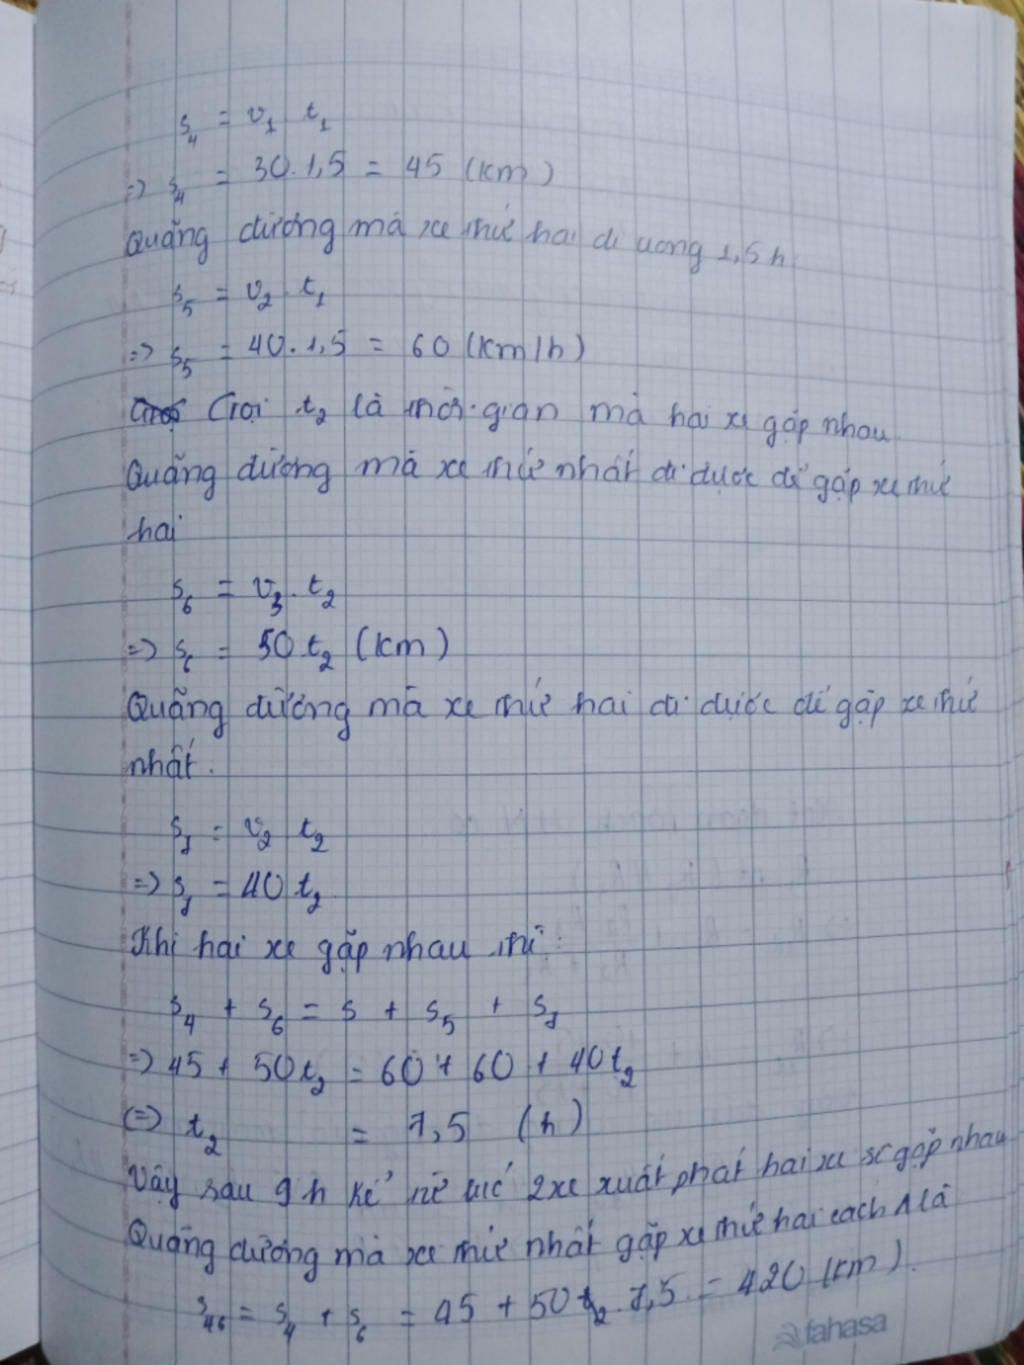 s₄ = v₁ t₁
=> s₄ = 30.1,5 = 45 (km)
Quãng đường mà xe thứ hai đi trong 1,5h
s₅ = v₂ . t₁
=> s₅ = 40.1,5 = 60 (km/h)
Gọi t₂ là thời gian mà hai xe gặp nhau
Quãng đường mà xe thứ nhất đi được để gặp xe thứ
hai
s₆ = v₃ . t₂
=> s₆ = 50 t₂ (km)
Quãng đường mà xe thứ hai đi được để gặp xe thứ
nhất.
s₇ = v₂ t₂
=> s₇ = 40 t₂
Khi hai xe gặp nhau thì :
s₄ + s₆ = s + s₅ + s₇
=> 45 + 50t₂ = 60 + 60 + 40t₂
(=> t₂ = 7,5 (h)
Vậy sau 9h kể từ lúc 2 xe xuất phát hai xe sẽ gặp nhau
Quãng đường mà xe thứ nhất gặp xe thứ hai cách A là
s₄₆ = s₄ + s₆ = 45 + 50t₂ . 7,5 = 420 (km).
fahasa